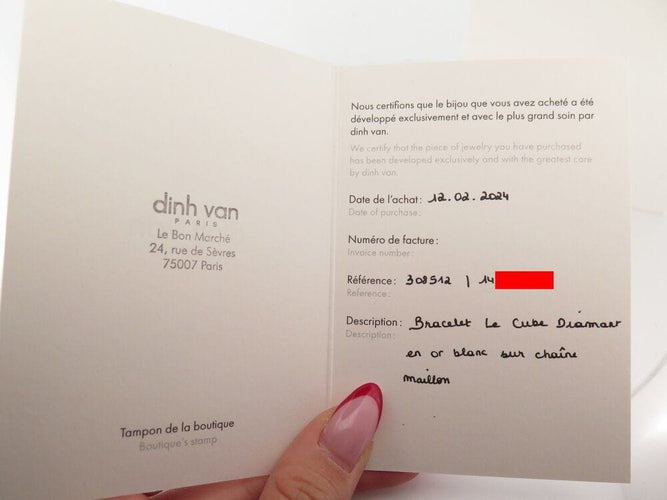 dinh van
PARIS
Le Bon Marché
24, rue de Sèvres
75007 Paris
Tampon de la boutique
Boutique's stamp
Nous certifions que le bijou que vous avez acheté a été
développé exclusivement et avec le plus grand soin par
dinh van.
We certify that the piece of jewelry you have purchased
has been developed exclusively and with the greatest care
by dinh van.
Date de l'achat : 12.02.2024
Date of purchase :
Numéro de facture :
Invoice number :
Référence : 308512 | 14
Reference :
Description : Bracelet Le Cube Diamant
Description :
en or blanc sur chaîne
maillon